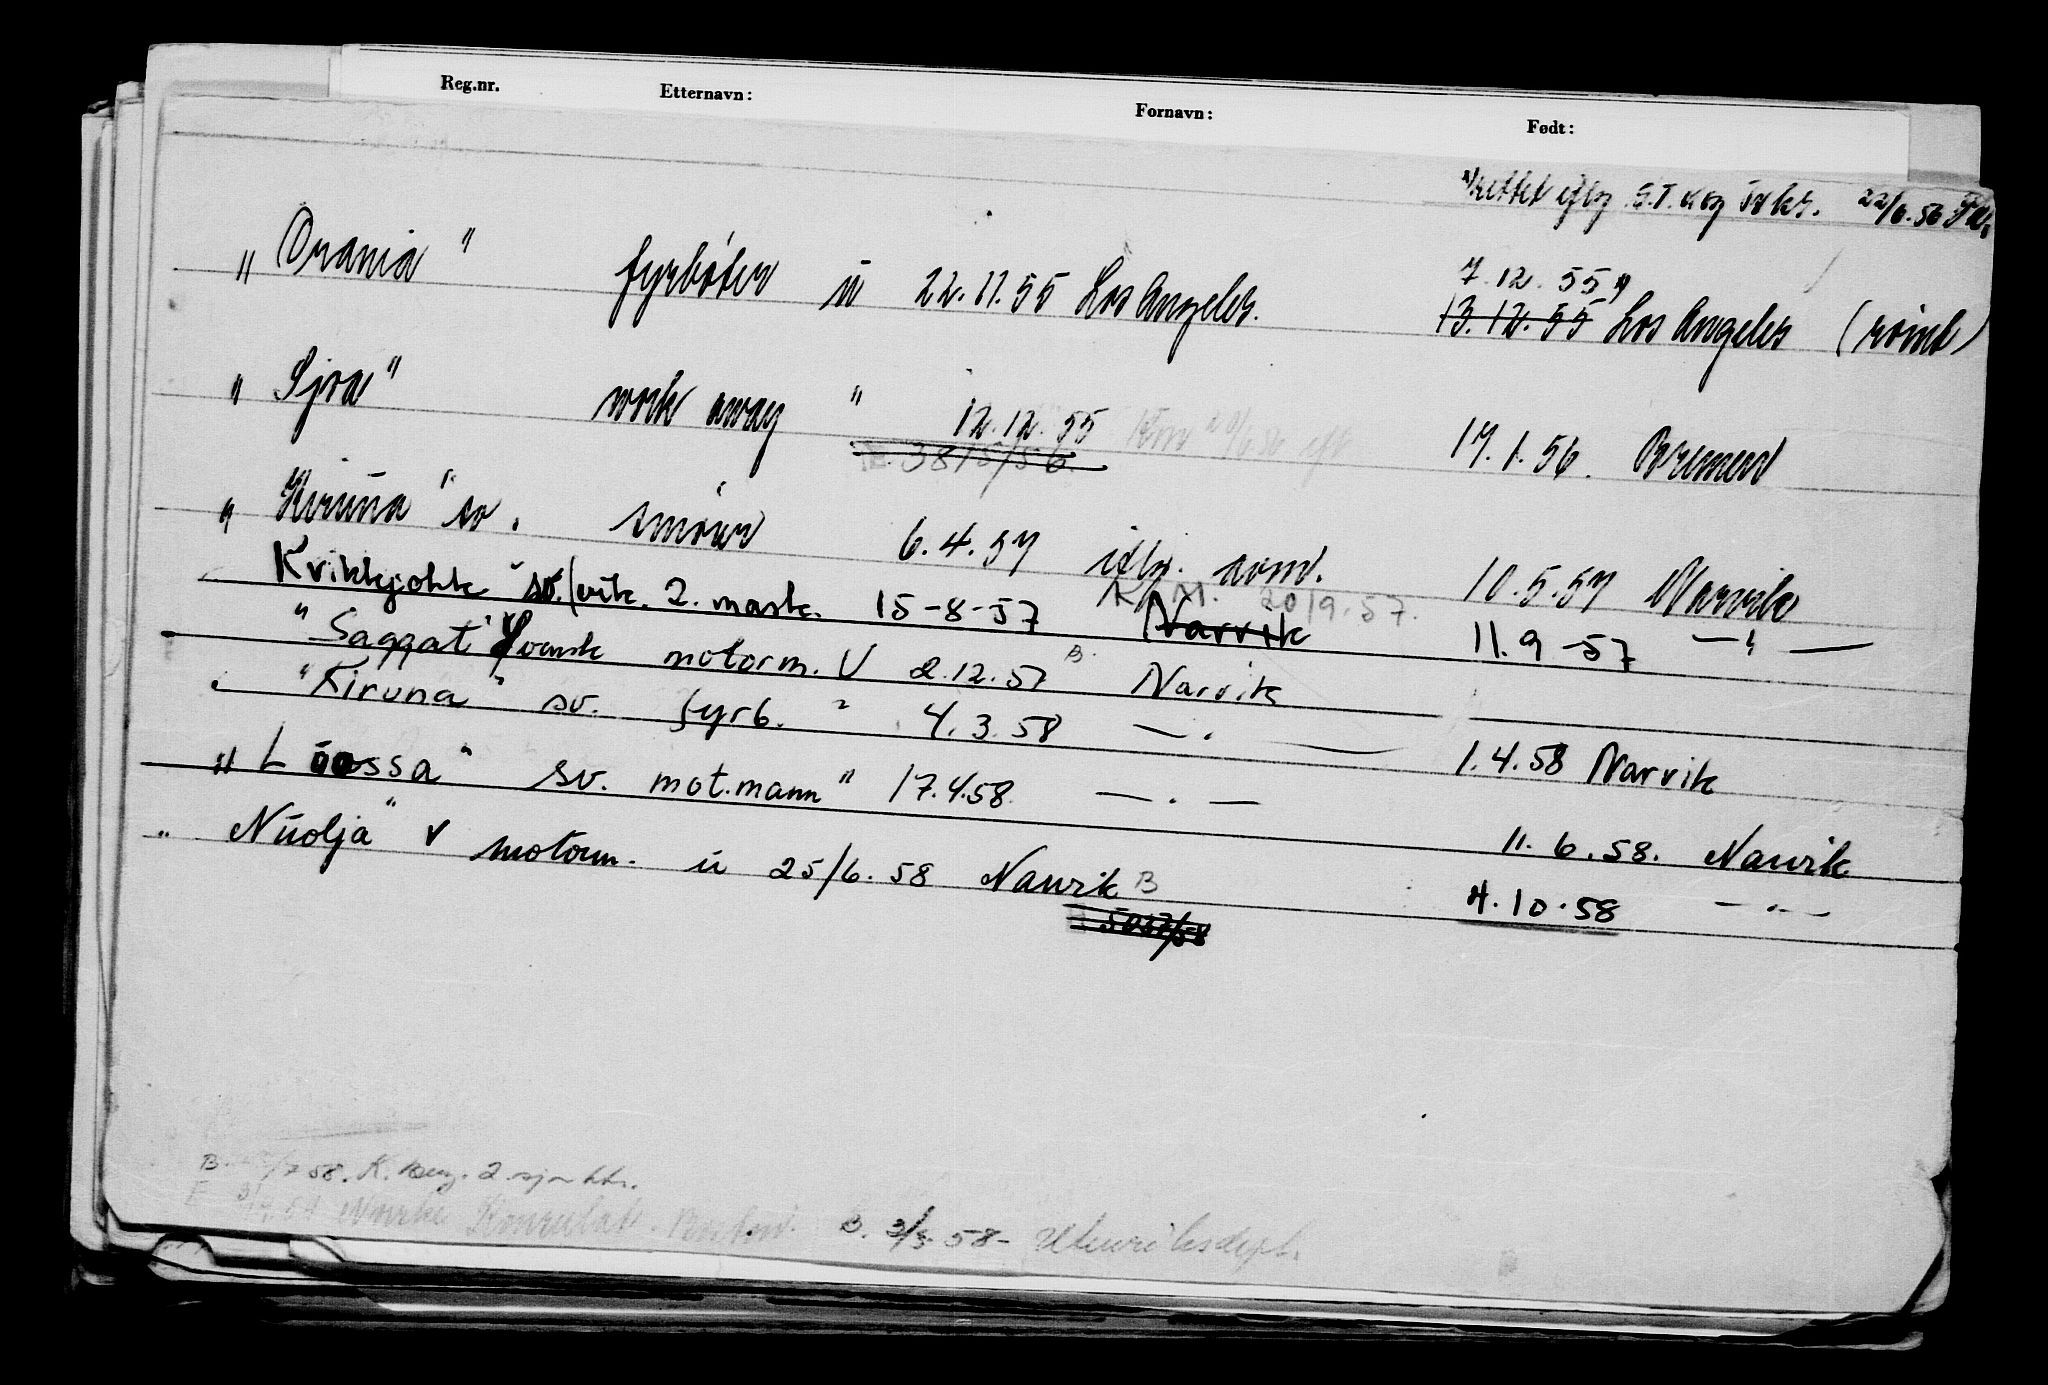 Reg.nr. Etternavn: Fornavn: Født:
rettet 22/6.56
" Orania " fyrbøter u 22.11.55 Los Angeles. 7.12.55
13.12.55 Los Angeles (rømt)
" Sjoa " work away " 12.12.55 17.1.56. Bremen
3815/56
" Kiruna " sv. smører 6.4.57 10.5.57 Narvik
Kvikkjokk " sv./vik. 2. mask. 15-8-57 Narvik 20/9.57. 11.9-57 — " —
" Saggat " Svensk motorm. U 2.12.57 B. Narvik
" Kiruna " sv. fyrb. " 4.3.58 — . — 1.4.58 Narvik
" Loussa " sv. mot.mann " 17.4.58. — . — 11.6.58. Narvik
" Nuolja " v motorm. u 25/6.58 Narvik B 4.10.58 — . —
5037/58
B. 58. K.
Norske Konsulat. Boston. B. 3/3.58- Utenriksdept.